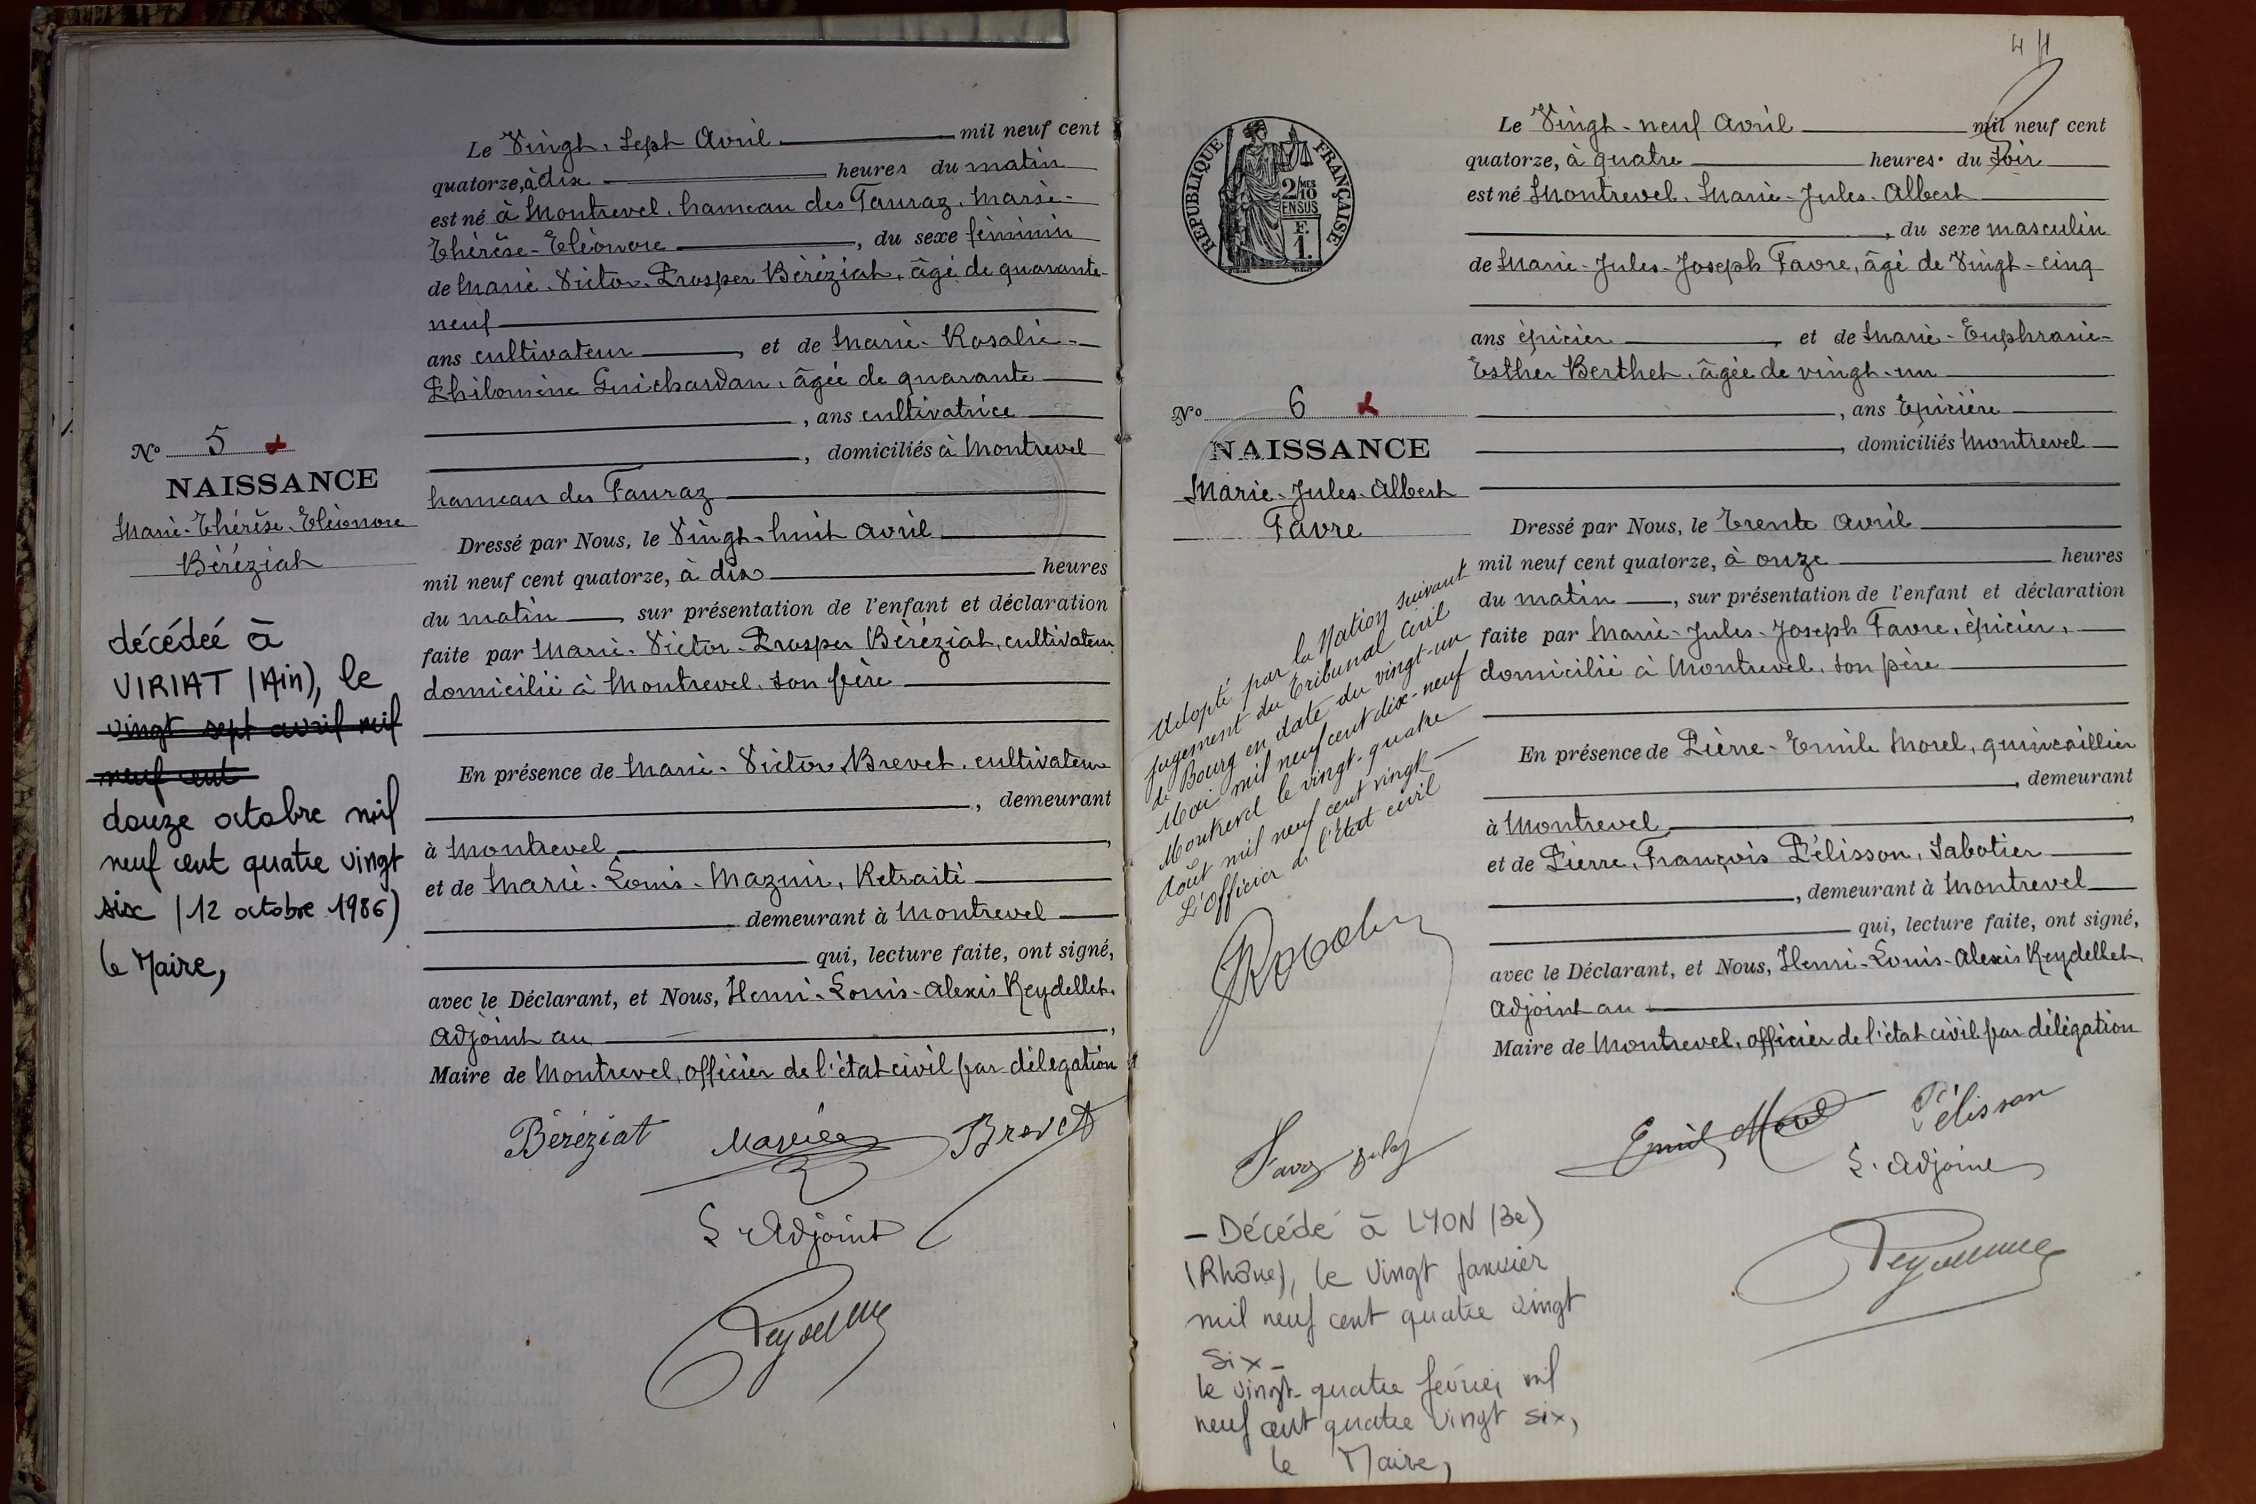 Le Vingt-Sept Avril mil neuf cent
quatorze, à dix heures du matin
est né à Montrevel, hameau des Tauraz, Marie-
Thérèse-Eléonore, du sexe féminin
de Marie-Victor-Prosper Béréziat, âgé de quarante-
neuf
ans cultivateur, et de Marie-Rosalie-
Philomène Guichardan, âgée de quarante
, ans cultivatrice
, domiciliés à Montrevel
hameau des Tauraz
Dressé par Nous, le Vingt-huit avril
mil neuf cent quatorze, à dix heures
du matin, sur présentation de l'enfant et déclaration
faite par Marie-Victor-Prosper Béréziat, cultivateur
domicilié à Montrevel, son père
En présence de Marie-Victor Brevet, cultivateur
, demeurant
à Montrevel,
et de Marie-Louis-Mazuir, Retraité
demeurant à Montrevel
qui, lecture faite, ont signé,
avec le Déclarant, et Nous, Henri-Louis-Alexis Reydellet,
Adjoint au,
Maire de Montrevel, officier de l'état civil par délégation
Béréziat Brevet
L'Adjoint
No 5
NAISSANCE
Marie-Thérèse-Eléonore
Béréziat
décédée à
VIRIAT (Ain), le
vingt sept avril mil
neuf cent
douze octobre mil
neuf cent quatre vingt
six (12 octobre 1986)
le Maire,
4
RÉPUBLIQUE FRANÇAISE
2/10MES
EN SUS
F.
1.
Le Vingt-neuf Avril mil neuf cent
quatorze, à quatre heures du Soir
est né Montrevel, Marie-Jules-Albert
, du sexe masculin
de Marie-Jules-Joseph Favre, âgé de Vingt-cinq
ans épicier, et de Marie-Euphrasie-
Esther Berthet, âgée de vingt-un
, ans Epicière
, domiciliés Montrevel
Dressé par Nous, le Trente avril
mil neuf cent quatorze, à onze heures
du matin, sur présentation de l'enfant et déclaration
faite par Marie-Jules-Joseph Favre, épicier,
domicilié à Montrevel, son père
En présence de Pierre-Emile Morel, quincaillier
, demeurant
à Montrevel,
et de Pierre, François Pélisson, Sabotier
, demeurant à Montrevel
qui, lecture faite, ont signé,
avec le Déclarant, et Nous, Henri-Louis-Alexis Reydellet,
Adjoint au
Maire de Montrevel, officier de l'état civil par délégation
Emile Morel Pélisson
L'adjoint
No 6
NAISSANCE
Marie-Jules-Albert
Favre
Adopté par la Nation suivant
jugement du Tribunal Civil
de Bourg en date du vingt-un
Mai mil neuf cent dix-neuf
Montrevel le vingt-quatre
Août mil neuf cent vingt
L'Officier de l'état civil
Favre Jules
- Décédé à LYON (3e)
(Rhône), le vingt Janvier
mil neuf cent quatre vingt
six -
le vingt-quatre février mil
neuf cent quatre vingt six,
le Maire,